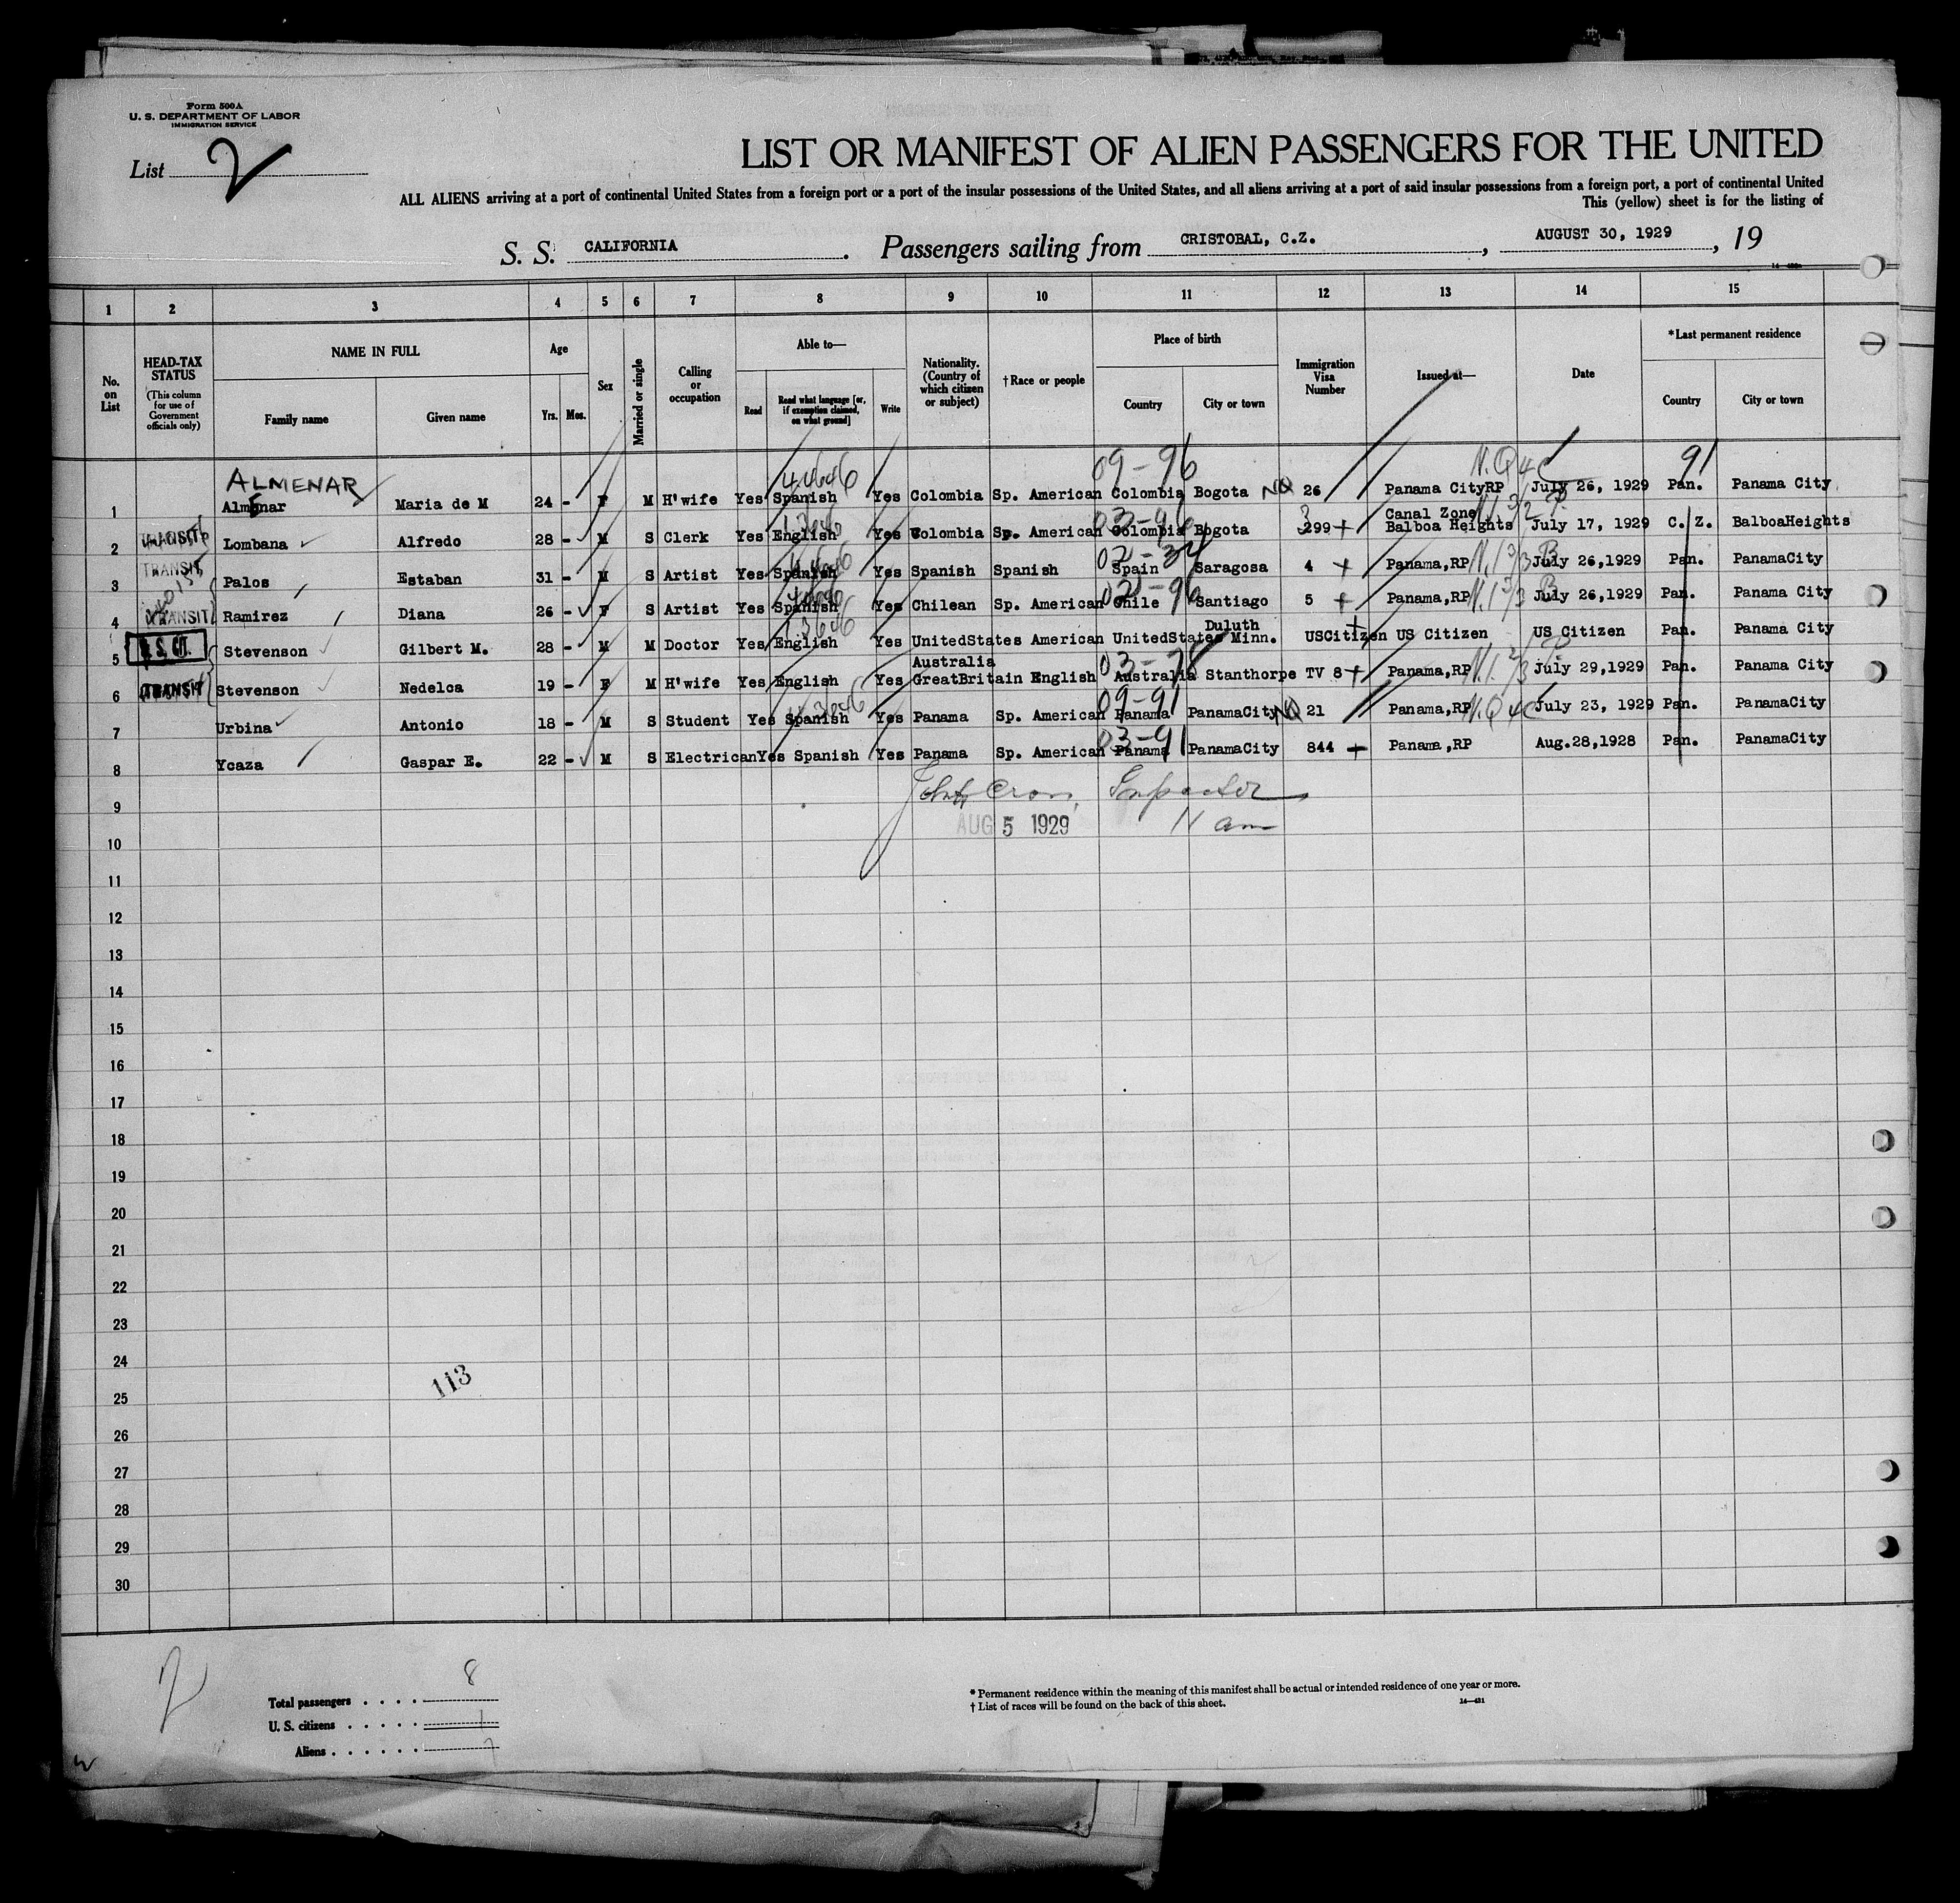 Form 500A
U. S. DEPARTMENT OF LABOR
IMMIGRATION SERVICE
List 2
LIST OR MANIFEST OF ALIEN PASSENGERS FOR THE UNITED
ALL ALIENS arriving at a port of continental United States from a foreign port or a port of the insular possessions of the United States, and all aliens arriving at a port of said insular possessions from a foreign port, a port of continental United
This (yellow) sheet is for the listing of
S. S. CALIFORNIA. Passengers sailing from CRISTOBAL, C.Z., AUGUST 30, 1929, 19
1 2 3 4 5 6 7 8 9 10 11 12 13 14 15
No. on List
HEAD-TAX STATUS
(This column for use of Government officials only)
NAME IN FULL
Family name
Given name
Age
Yrs. Mos.
Sex
Married or single
Calling or occupation
Able to—
Read
Read what language [or, if exemption claimed, on what ground]
Write
Nationality. (Country of which citizen or subject)
†Race or people
Place of birth
Country
City or town
Immigration Visa Number
Issued at—
Date
*Last permanent residence
Country
City or town
ALMENAR 09-96 N.Q 4c 91
1 Almenar Maria de M 24 - F M H'wife Yes Spanish Yes Colombia Sp. American Colombia Bogota NQ 26 Panama CityRP July 26, 1929 Pan. Panama City
Canal Zone
2 TRANSIT Lombana Alfredo 28 - M S Clerk Yes English Yes Colombia Sp. American Colombia Bogota 299 Balboa Heights July 17, 1929 C. Z. BalboaHeights
3 TRANSIT Palos Estaban 31 - M S Artist Yes Spanish Yes Spanish Spanish Spain Saragosa 4 Panama,RP July 26,1929 Pan. PanamaCity
4 TRANSIT Ramirez Diana 26 - F S Artist Yes Spanish Yes Chilean Sp. American Chile Santiago 5 Panama,RP July 26,1929 Pan. Panama City
Duluth
5 U.S. CIT. Stevenson Gilbert M. 28 - M M Doctor Yes English Yes UnitedStates American UnitedStates Minn. USCitizen US Citizen US Citizen Pan. Panama City
Australia
6 TRANSIT Stevenson Nedeloa 19 - F M H'wife Yes English Yes GreatBritain English Australia Stanthorpe TV 8 Panama,RP July 29,1929 Pan. Panama City
7 Urbina Antonio 18 - M S Student Yes Spanish Yes Panama Sp. American Panama PanamaCity NQ 21 Panama,RP July 23, 1929 Pan. PanamaCity
8 Ycaza Gaspar E. 22 - M S ElectricanYes Spanish Yes Panama Sp. American Panama PanamaCity 844 Panama,RP Aug.28,1928 Pan. PanamaCity
9
10 AUG 5 1929 11 am
11
12
13
14
15
16
17
18
19
20
21
22
23
24
25 113
26
27
28
29
30
2
Total passengers . . . . 8
U. S. citizens . . . . . 1
Aliens . . . . . . 7
* Permanent residence within the meaning of this manifest shall be actual or intended residence of one year or more.
† List of races will be found on the back of this sheet.
14—421